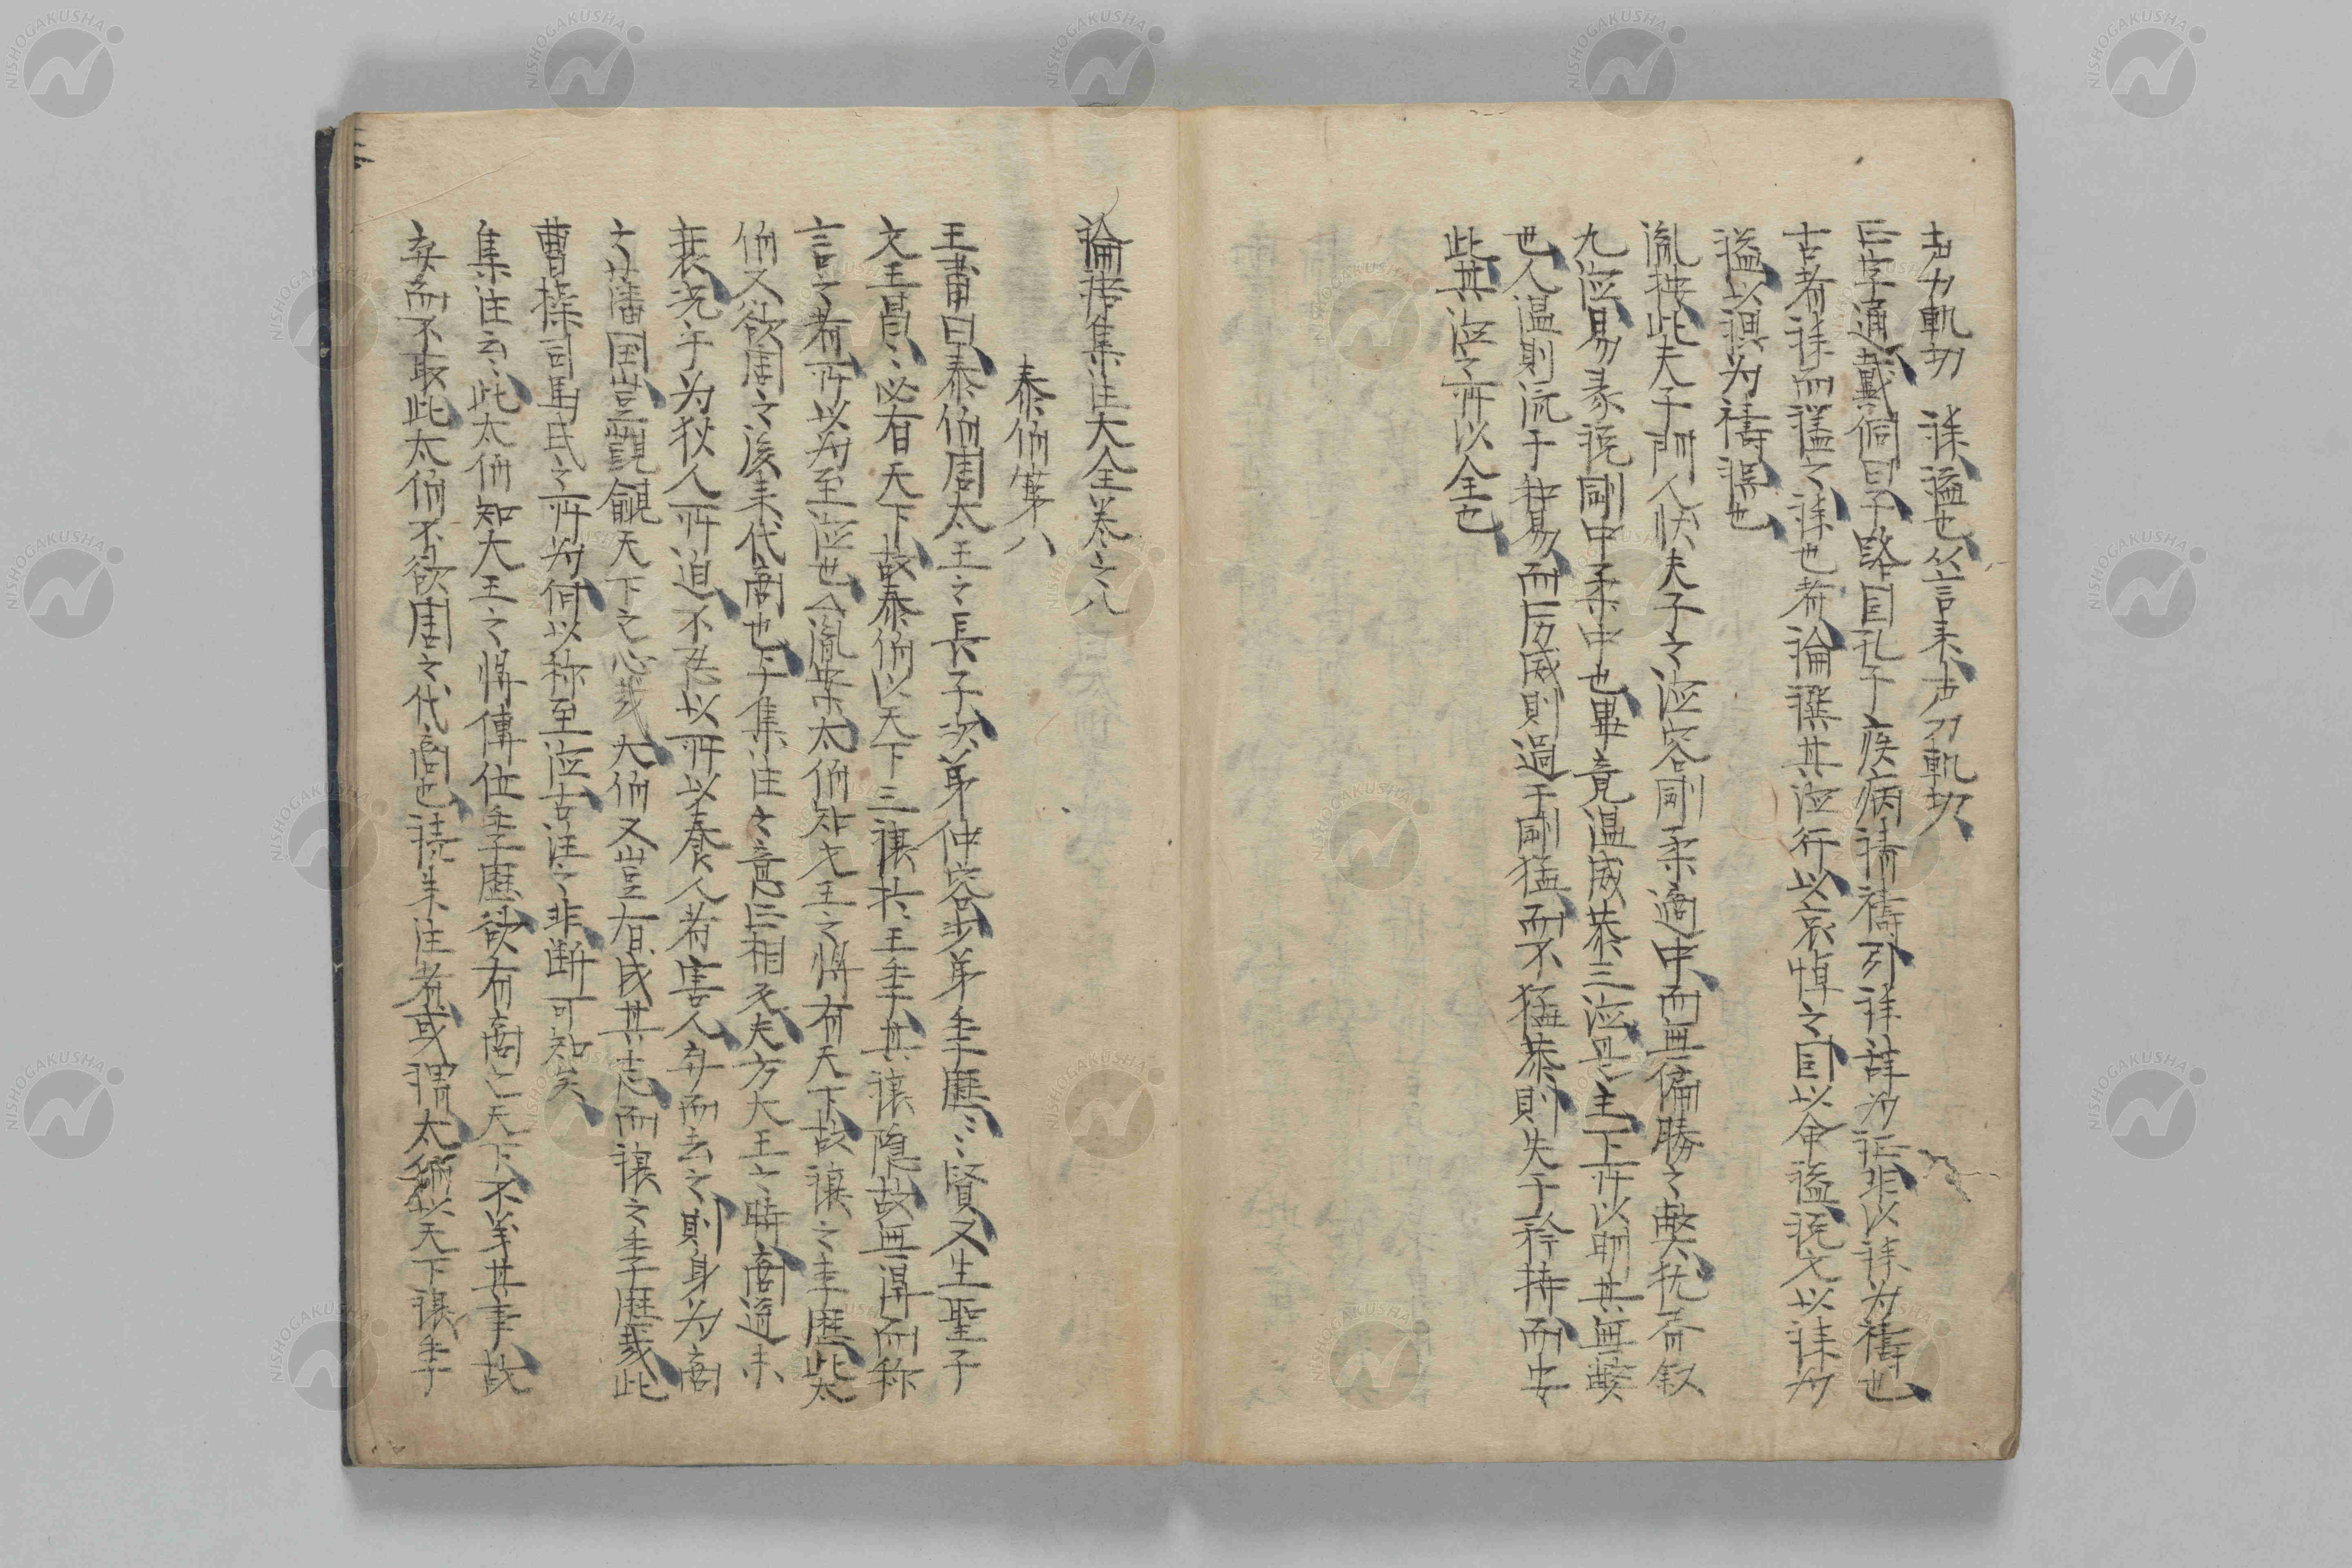 声力軌切 誄謚也从言耒声力軌切
二字通戴侗曰子路因孔子疾病請禱引誄辞为証非以誄为禱也
古者誄而謚之誄也者論譔其德行以哀悼之因以命謚説文以誄为
謚以讄为禱誤也
胤按此夫子門人状夫子之德容剛柔適中而無偏勝之弊猶舜叙
九德易彖説剛中柔中也畢竟温威恭三德是主下所以明其無弊
也人温則流于慢易而厲威則過于剛猛而不猛恭則失于矜持而安
此其德之所以全也
論語集注大全巻之八
泰伯第八
王肅曰泰伯周太王之長子次弟仲容少弟季歴〻〻賢又生聖子
文王昌〻必有天下故泰伯以天下三譲於王季其譲隠故無得而称
言之者所以为至德也今胤案太伯知大王之将有天下故譲之季歴此太
伯又欲周之後来代商也与集注之意正相反夫方大王之時商道未
衰况乎为狄人所迫不忍以所以養人者害人弃而去之則身为商
之藩国豈覬覦天下之心哉大伯又豈有成其志而譲之季歴哉此
曹操司馬氏之所为何以称至德古注之非断可知矣
集注云〻此太伯知大王之将傳位季歴欲有商之天下不義其事故
弃而不取此太伯不欲周之代商也諸朱注者或謂太伯以天下譲季